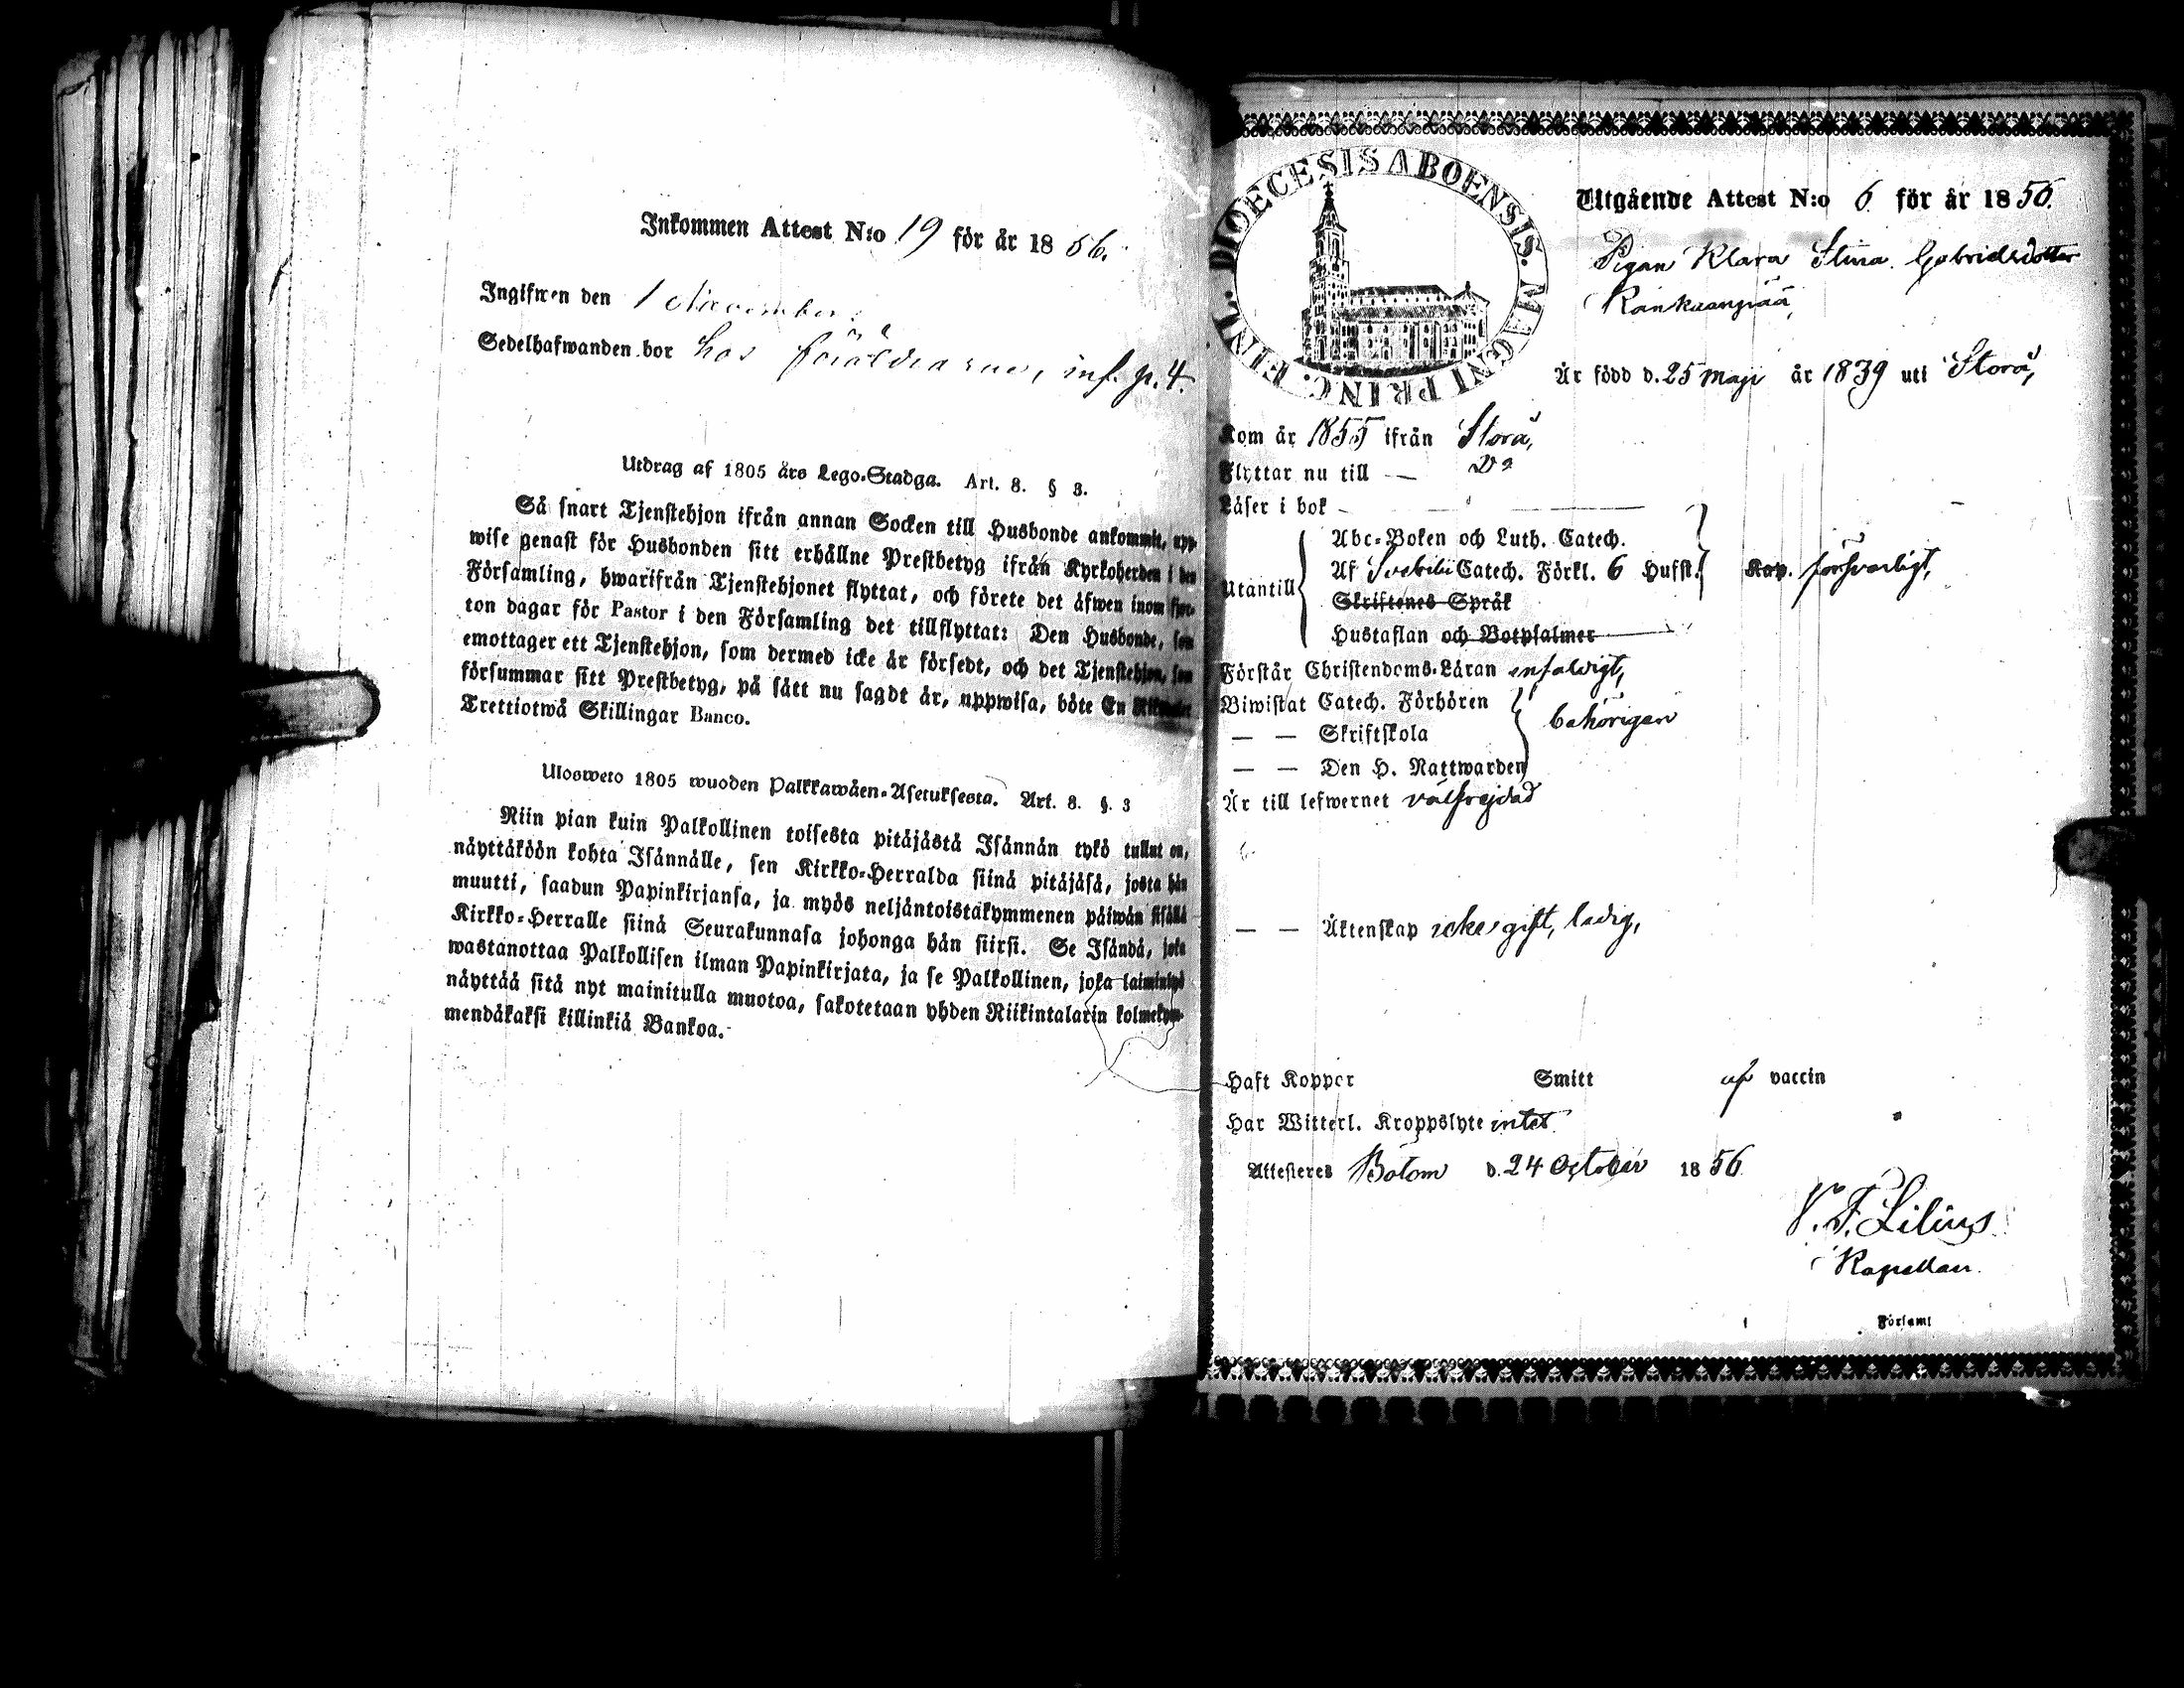 Inkommen Attest N:o 19 för år 1856.
Ingifwen den 1 November.
Sedelhafwanden bor hos föräldrarne, inf. p. 4.
Utdrag af 1805 års Lego-Stadga. Art. 8. § 3.
Så snart Tjenstehjon ifrån annan Socken till Husbonde ankommit, upp-
wise genast för Husbonden sitt erhållne Prestbetyg ifrån Kyrkoherden i den
Församling, hwarifrån Tjenstehjonet flyttat, och förete det åfwen inom fjor-
ton dagar för Pastor i den Församling det tillflyttat: Den Husbonde, som
emottager ett Tjenstehjon, som dermed icke är försedt, och det Tjenstehjon, som
försummar sitt Prestbetyg, på sätt nu sagdt är, uppwisa, böte En Riksdaler
Trettiotwå Skillingar Banco.
Ulosweto 1805 wuoden Palkkawåen-Asetuksesta. Art. 8. §. 3
Niin pian kuin Palkollinen toisesta pitäjästä Isännän tykö tullut on,
näyttäköön kohta Isännälle, sen Kirkko-Herralda siinä pitäjäsä, josta hän
muutti, saadun Papinkirjansa, ja myös neljäntoistakymmenen päiwän sisällä
Kirkko-Herralle siinä Seurakunnasa johonga hän siirsi. Se Isändä, joka
wastanottaa Palkollisen ilman Papinkirjata, ja se Palkollinen, joka laiminlyö
näyttää sitä nyt mainitulla muotoa, sakotetaan yhden Riikintalarin kolmekym-
mendäkaksi killinkiä Bankoa.
DIOECESIS ABOENSIS. MAGNI PRINC. FINL.
Utgående Attest N:o 6 för år 1856.
Pigan Klara Stina Gabrielsdotter
Rånkuanpää,
Är född d. 25 maji år 1839 uti Storå,
Kom år 1855 ifrån Storå,
Flyttar nu till — Do
Läser i bok
Abc-Boken och Luth. Catech.
Utantill Af Svebilii Catech. Förkl. 6 Hufst. försvarligt,
Skriftenes Språk
Hustaflan och Botpsalmer
Förstår Christendoms-Läran enfaldigt,
Biwistat Catech. Förhören
— — Skriftskola behörigen
— — Den H. Nattwarden
Är till lefwernet välfrejdad
— — Äktenskap icke gift, ledig,
Haft Koppor Smitt af vaccin
Har Witterl. Kroppslyte intet
Attesteres Bötom d. 24 October 1856
V. F. Lilius
Kapellan.
Församl